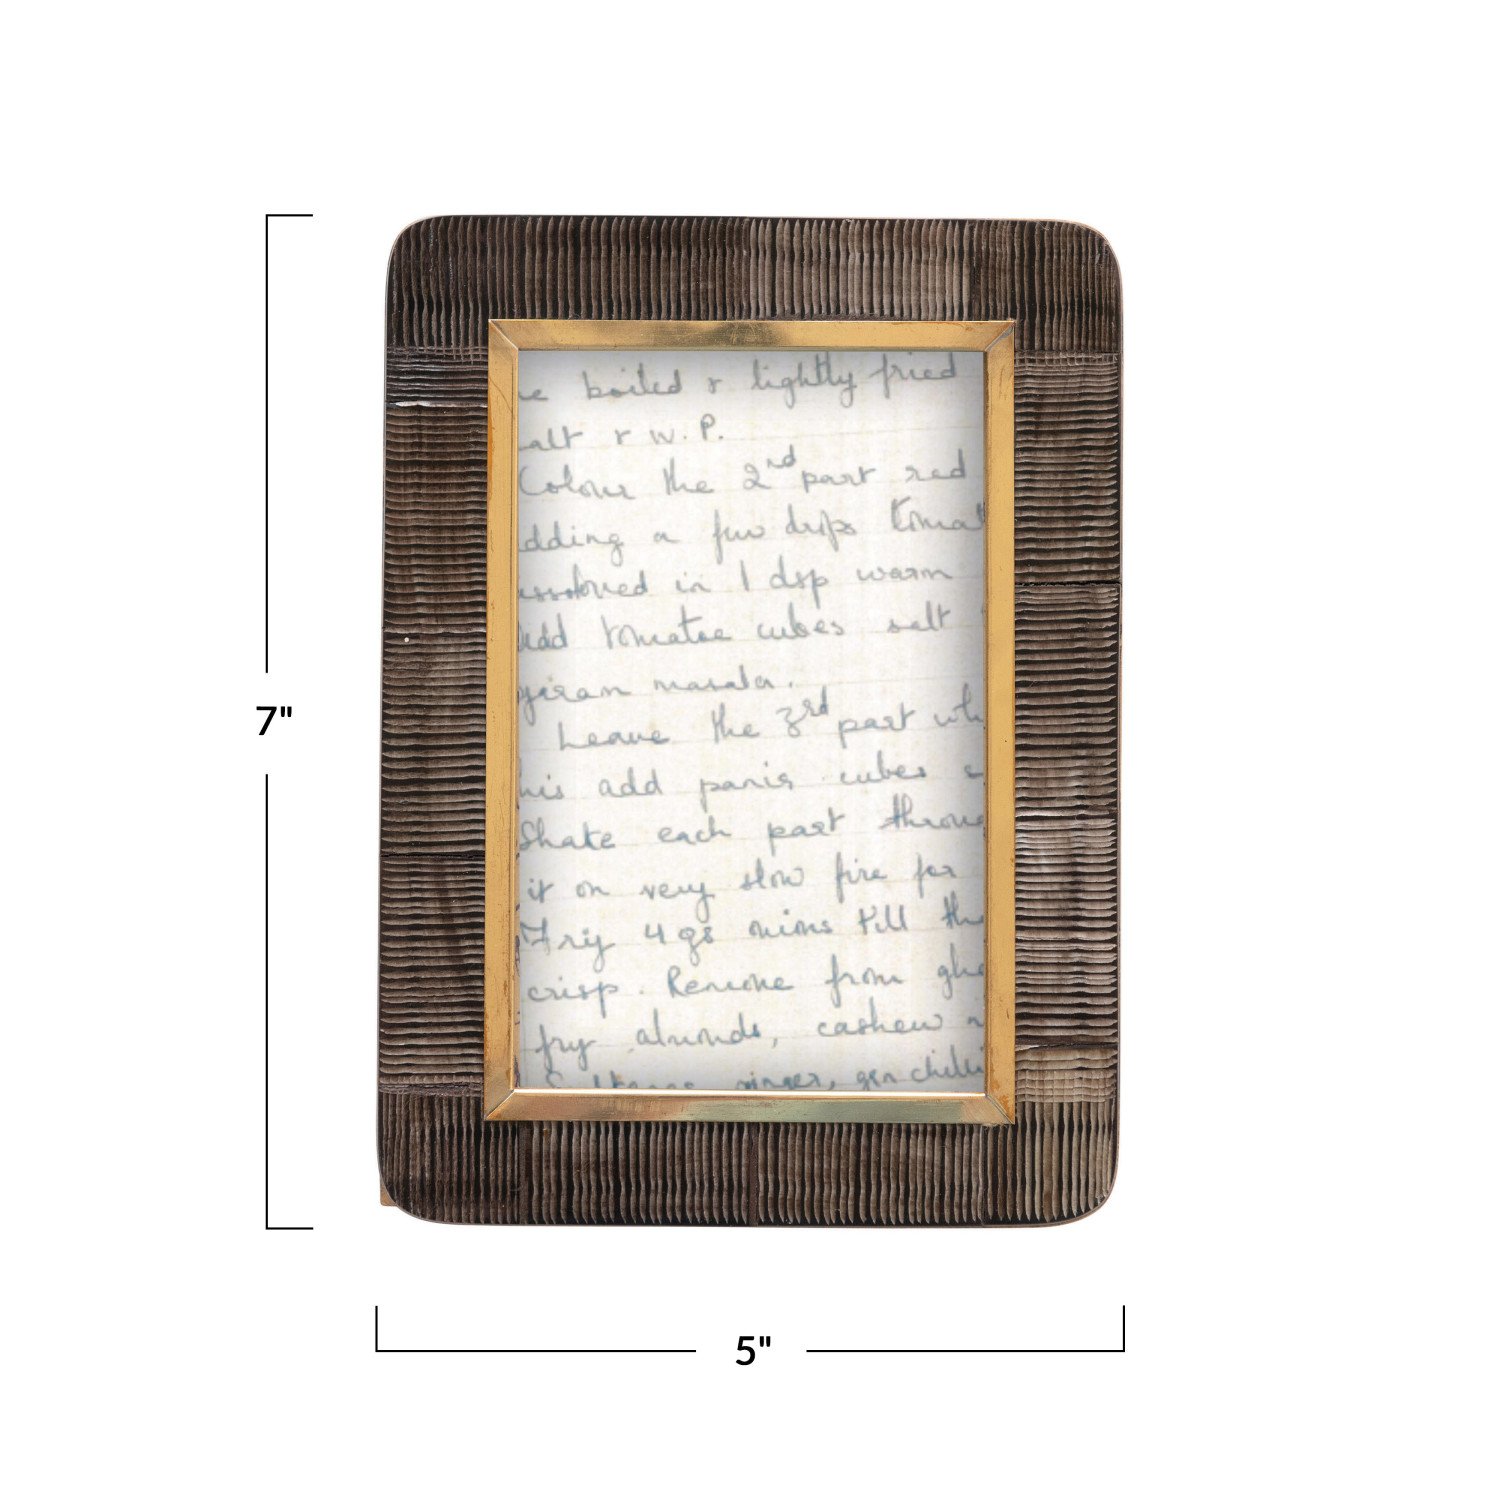 boiled & lightly fried
alt & W.P.
Colour the 2nd part red
dding a few drops tomat
ssolved in 1 dsp warm
Add tomatoe cubes salt
garam masala.
Leave the 3rd part whi
his add panir cubes
Shake each part throug
it on very slow fire for
Fry 4 gs nims till the
crisp. Remove from ghe
fry almonds, cashew n
ginger, grn chilli
7"
5"